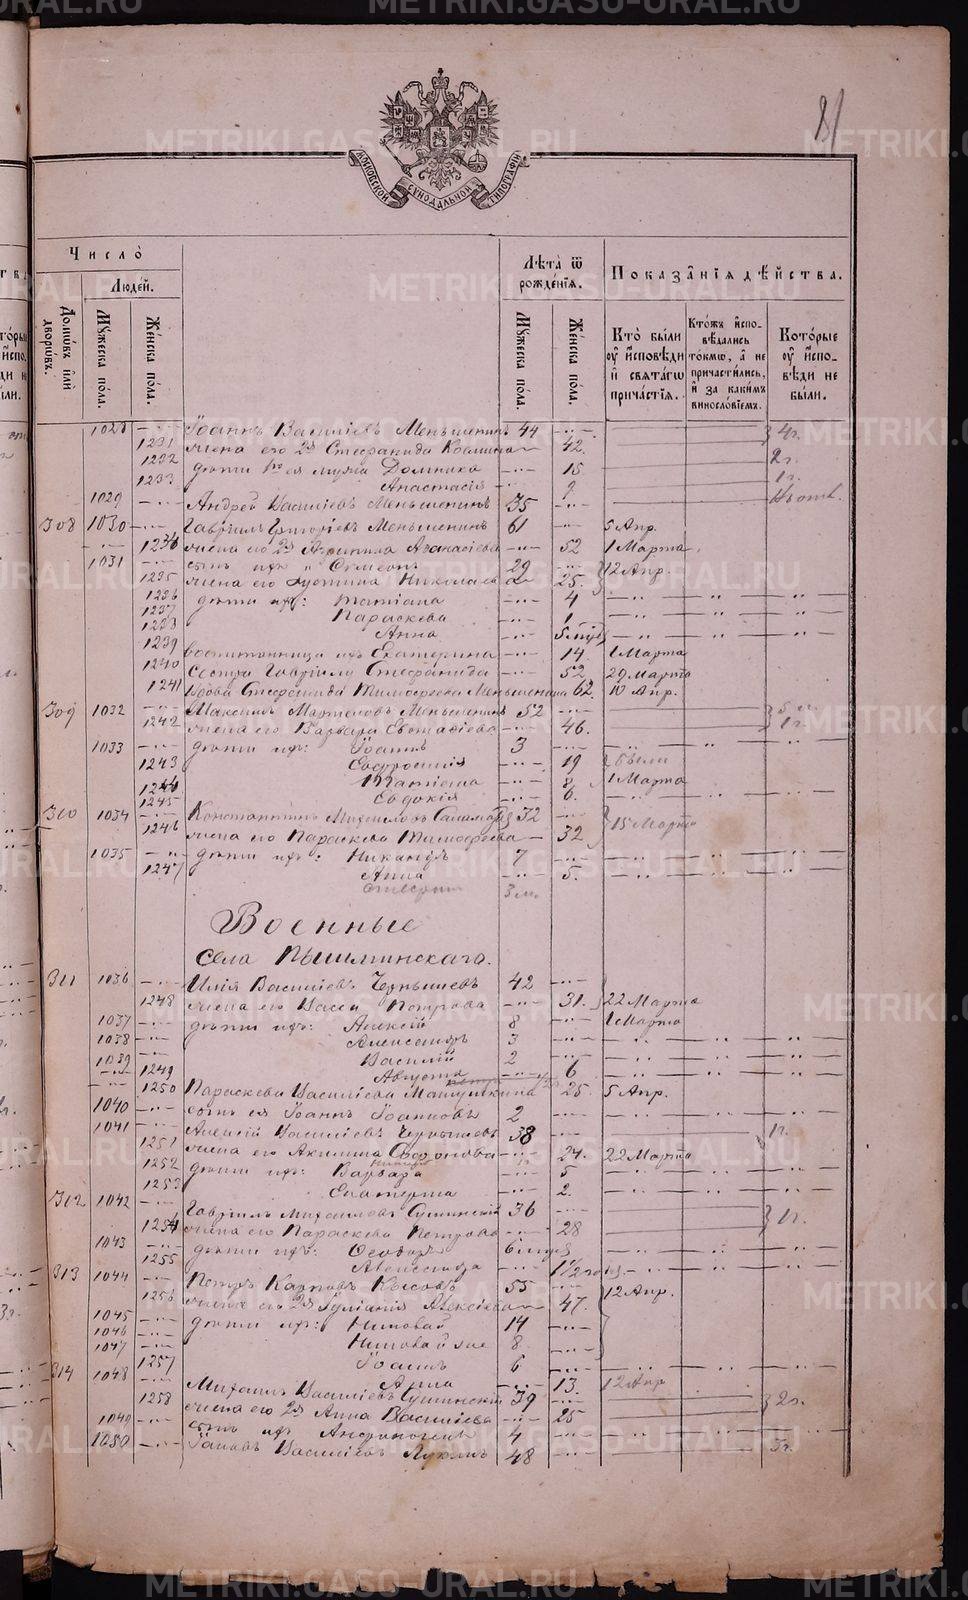 METRIKI.GASO-URAL.RU
81
МОСКОВСКОЙ СѴНОДАЛЬНОЙ ТИПОГРАФІИ
Число̀
Люде́й.
Домѡвъ и҆лѝ дворѡвъ.
Мꙋ́жеска по́ла.
Же́нска по́ла.
Лѣ́та ѿ рожде́нїѧ.
Мꙋ́жеска по́ла.
Же́нска по́ла.
Показа̑нїѧ дѣ́йства.
Кто̀ бы́ли оу҆ и҆сповѣди и҆ свѧта́гѡ прича́стїѧ.
Кто́жъ и҆сповѣ́дались то́кмѡ, а҆ не причасти́лись, и҆ за каки́мъ винословїемъ.
Кото́рые оу҆ и҆сповѣди не бы́ли.
1028 Іоаннъ Василіевъ Меньшенинъ 44 4г.
1231 жена его 2я Стефанида Козмина 42. 2г.
1232 дѣти 1го ея мужа Домника 15. 1г.
1233 Анастасія 9
1029 Андрей Василіевъ Меньшенинъ 35
308 1030 Гавріилъ Григоріевъ Меньшенинъ 61 5 Апр.
1234 жена его 2я Акилина Аѳанасіева 52 1 Марта
1031 сынъ ихъ Сѵмеонъ 29 12 Апр.
1235 жена его Іустина Николаева 25.
1236 дѣти ихъ: Татіана 4
1237 Параскева 1
1238 Анна 5 мцъ
1239 воспитанница ихъ Екатерина 14 1 Марта
1240 Сестра Гавріила Стефанида 52 29 Марта
1241 Вдова Стефанида Тимоѳеева Меньшенина 62. 10 Апр.
309 1032 Максимъ Мартемовъ Меньшенинъ 52
1242 жена его Варвара Евстафіева 46. 1г.
1033 дѣти ихъ: Іоаннъ 3
1243 Евфросинія 19 были
1244 Татіана 8 1 Марта
1245 Евдокія 6.
310 1034 Константинъ Михаиловъ 32 15 Марта
1246 жена его Параскева Тимоѳеева 32
1035 дѣти ихъ: Никандръ 7
1247 Анна 5.
3 м.
Военные
села Пышминскаго.
311 1036 Илія Василіевъ Чернышевъ 42
1248 жена его Васса Петрова 31. 22 Марта
1037 дѣти ихъ: Алексій 8 1 Марта
1038 Александръ 3
1039 Василій 2
1249 Августа 6
1250 Параскева Василіева 25. 5 Апр.
1040 сынъ ея Іоаннъ Іоанновъ 2
1041 Алексій Василіевъ Чернышевъ 38 1г.
1251 жена его Акилина Софронова 24. 22 Марта
1252 дѣти ихъ: Варвара 5
1253 Екатерина 2.
312 1042 Гавріилъ Михаиловъ Сушинскій 36 1г.
1254 жена его Параскева Петрова 28
1043 дѣти ихъ: Ѳеодоръ 6 мцъ
1255 Александра 1 1/2 года
313 1044 Петръ Карповъ 55 12 Апр.
1256 жена его 2я Іуліанія Алексіева 47.
1045 дѣти ихъ: Николай 14
1046 Николай же 8
1047 Іоаннъ 6
1257 Анна 13. 12 Апр
314 1048 Михаилъ Василіевъ Сушинскій 39 2г.
1258 жена его 2я Анна Василіева 25
1049 сынъ ихъ Андроникъ 4
1050 Іаковъ Василіевъ 48 3г.